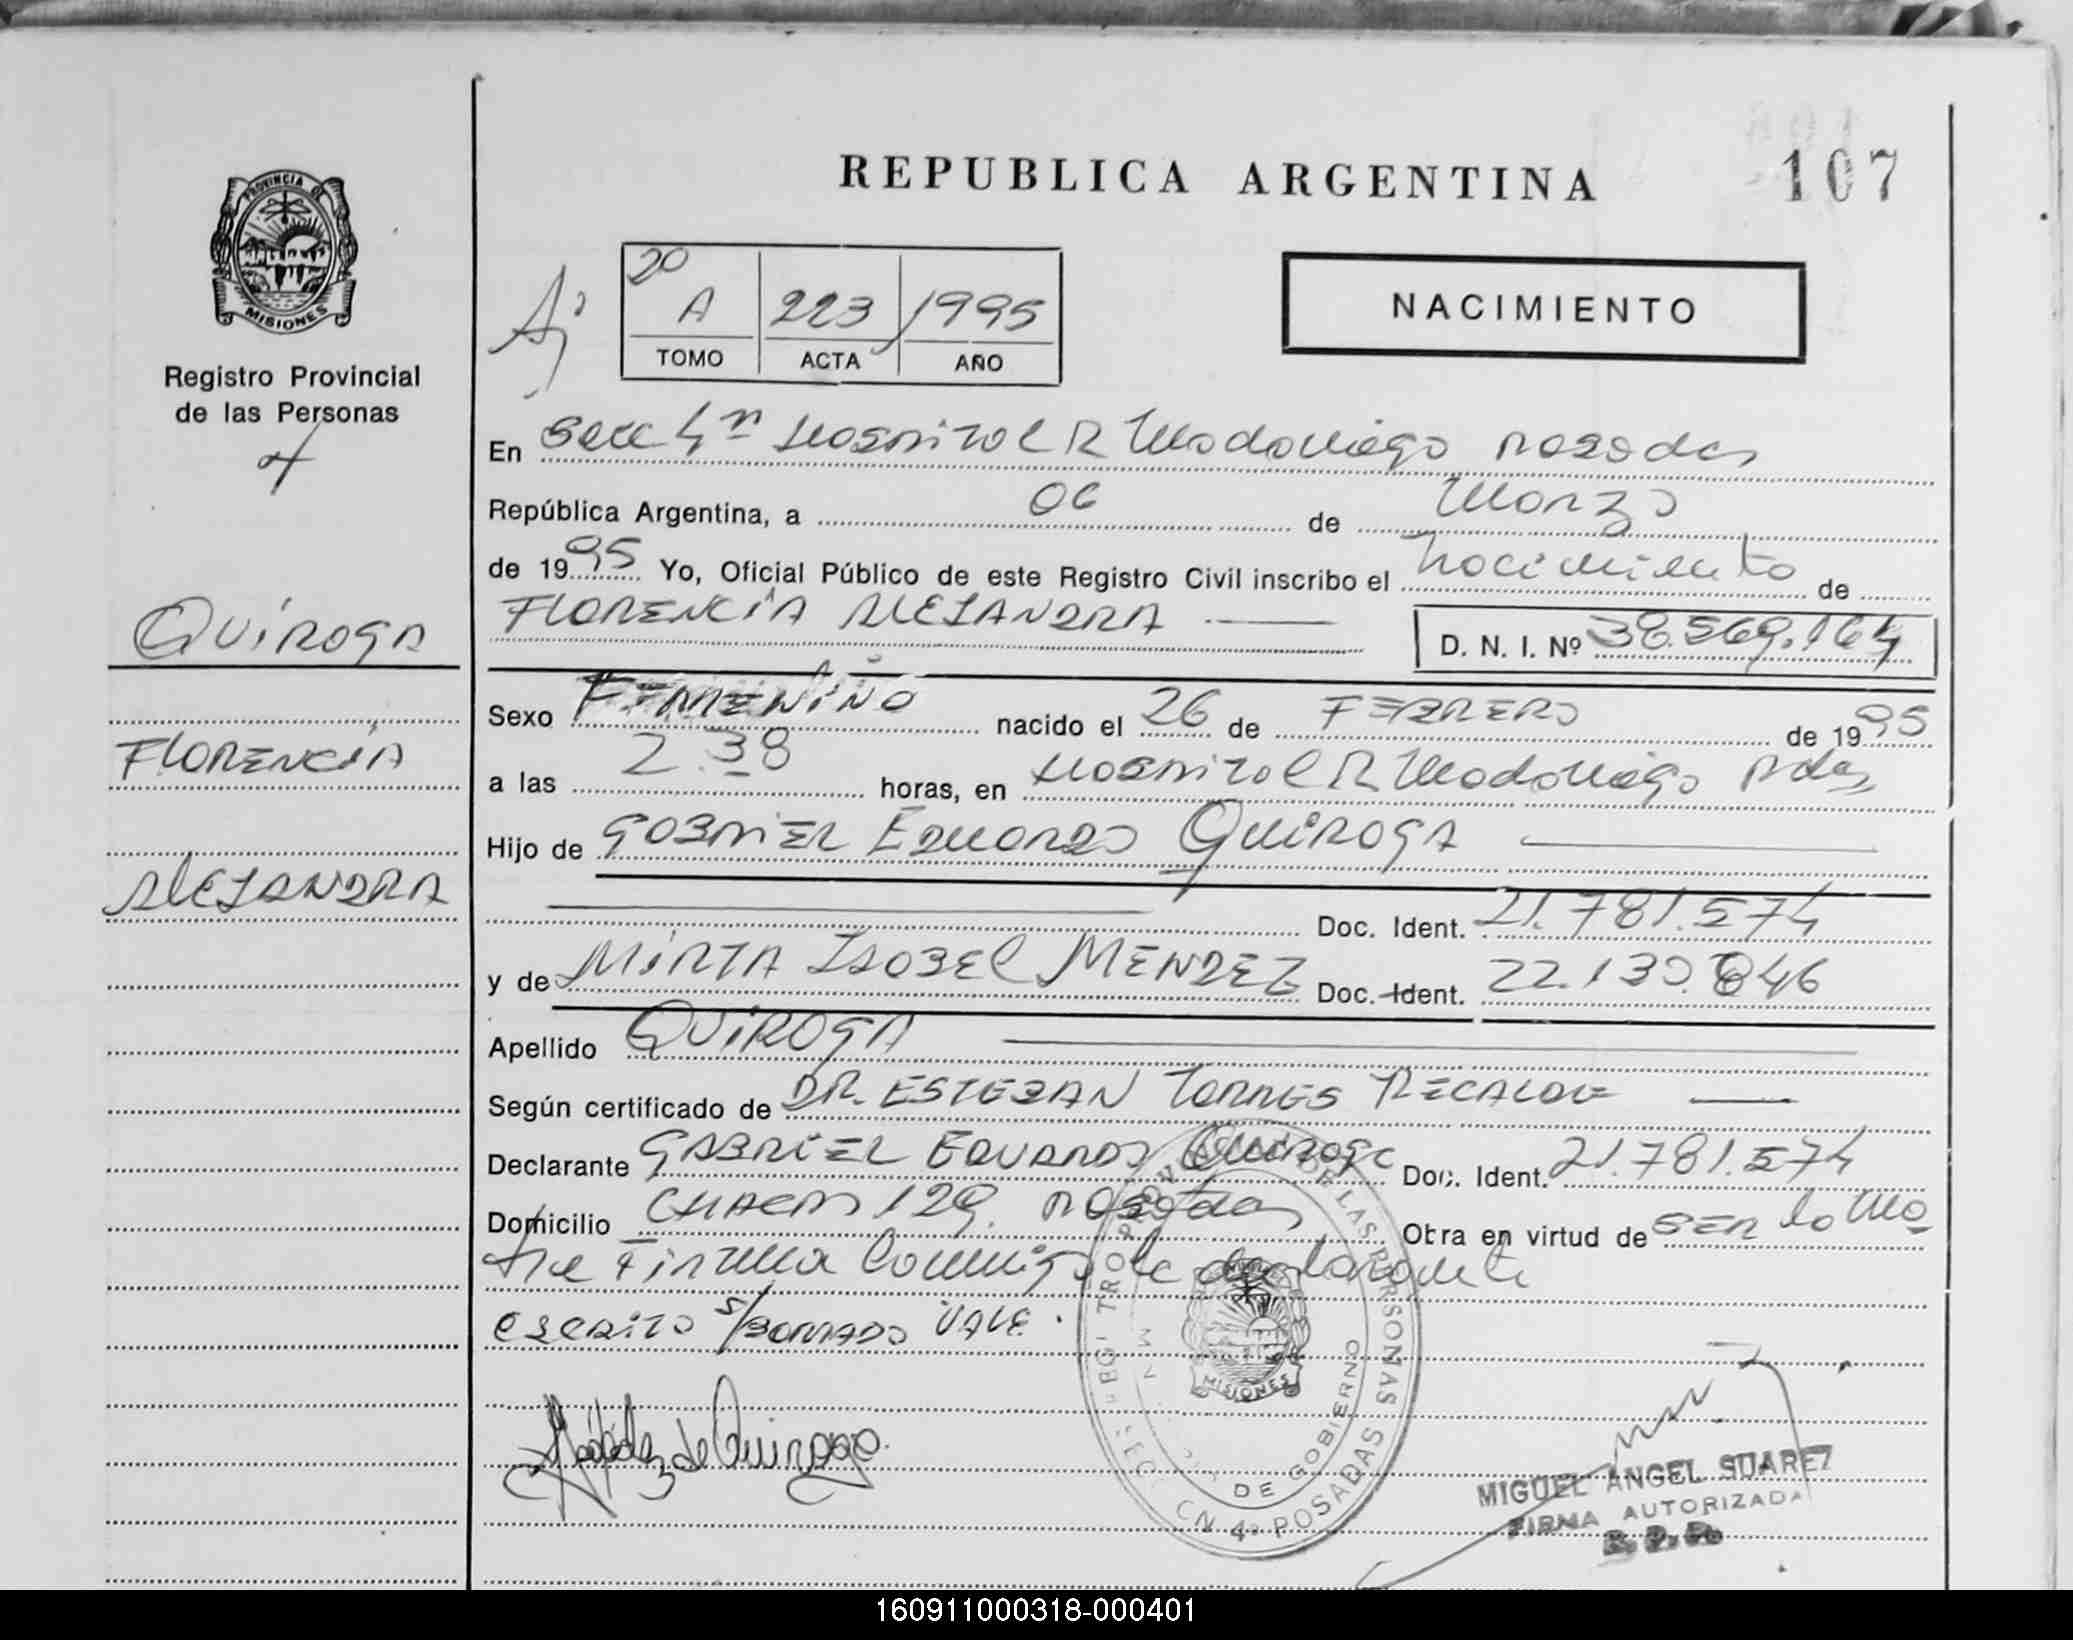 REPUBLICA ARGENTINA
107
PROVINCIA DE
MISIONES
Registro Provincial
de las Personas
20
A 223 1995
TOMO ACTA AÑO
NACIMIENTO
En Secc 4ª Hospital R Madariaga Posadas
República Argentina, a 06 de Marzo
de 1995 Yo, Oficial Público de este Registro Civil inscribo el nacimiento de
FLORENCIA ALEJANDRA
D. N. I. Nº 38.569.164
QUIROGA
FLORENCIA
ALEJANDRA
Sexo FEMENINO nacido el 26 de FEBRERO de 1995
a las 2.38 horas, en Hospital R Madariaga Pdas
Hijo de GABRIEL EDUARDO QUIROGA
Doc. Ident. 21.781.574
y de MIRTA ISABEL MENDEZ Doc. Ident. 22.130.846
Apellido QUIROGA
Según certificado de DR. ESTEBAN TORRES RECALDE
Declarante GABRIEL EDUARDO Quiroga Doc. Ident. 21.781.574
Domicilio CHACO 129. Posadas Obra en virtud de SER la Ma
dre Firma Conmigo la declarante
escrito s/BORRADO VALE.
de Quiroga
REGISTRO PROVINCIAL DE LAS PERSONAS
MISIONES
DE GOBIERNO
SECCN 4ª POSADAS
MIGUEL ANGEL SUAREZ
FIRMA AUTORIZADA
R. P. P.
160911000318-000401